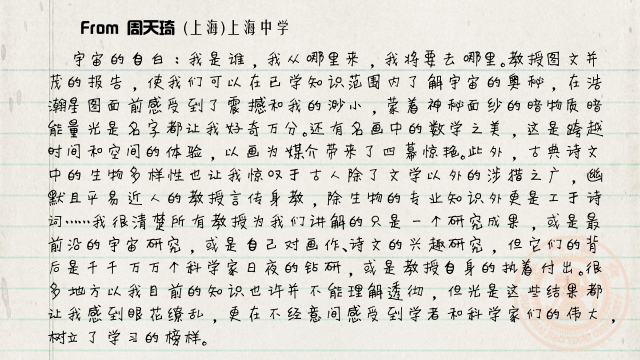 From 周天琦 (上海)上海中学
宇宙的自白：我是谁，我从哪里来，我将要去哪里。教授图文并
茂的报告，使我们可以在已学知识范围内了解宇宙的奥秘，在浩
瀚星图面前感受到了震撼和我的渺小，蒙着神秘面纱的暗物质暗
能量光是名字都让我好奇万分。还有名画中的数学之美，这是跨越
时间和空间的体验，以画为媒介带来了四幕惊艳。此外，古典诗文
中的生物多样性也让我惊叹于古人除了文学以外的涉猎之广，幽
默且平易近人的教授言传身教，除生物的专业知识外更是工于诗
词……我很清楚所有教授为我们讲解的只是一个研究成果，或是最
前沿的宇宙研究，或是自己对画作、诗文的兴趣研究，但它们的背
后是千千万万个科学家日夜的钻研，或是教授自身的执着付出。很
多地方以我目前的知识也许并不能理解透彻，但光是这些结果都
让我感到眼花缭乱，更在不经意间感受到学者和科学家们的伟大，
树立了学习的榜样。